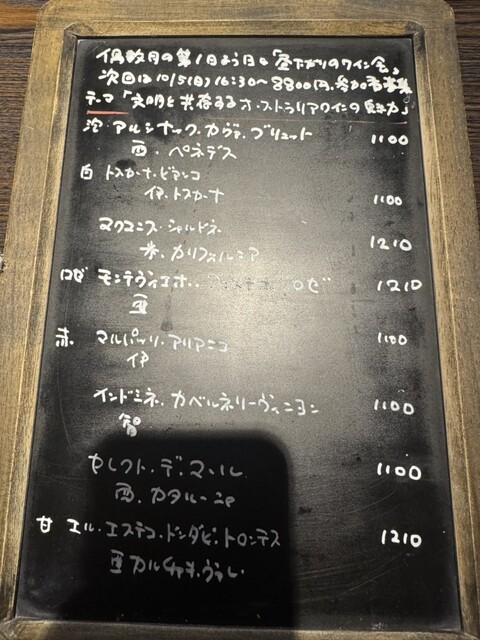 偶数月の第1日よう日は「昼下がりのワイン会」
次回は10/5(日)16:30〜8800円、参加者募集
テーマ「文明と共存するオーストラリアワインの魅力」
泡・アルシナック・カヴァ・ブリュット 1100
西・ペネデス
白 トスカーナ・ビアンコ
伊・トスカーナ 1100
マクマニス・シャルドネ 1210
米・カリフォルニア
ロゼ モンテヴィエホ・ ロゼ 1210
亜
赤 マルパッソ・アリアニコ 1100
伊
インドミネ・カベルネソーヴィニヨン 1100
智
セレクト・デ・マール 1100
西・カタルーニャ
甘 エル・エステコ・ドンダビ・トロンテス 1210
亜 カルチャキ・ヴァレー